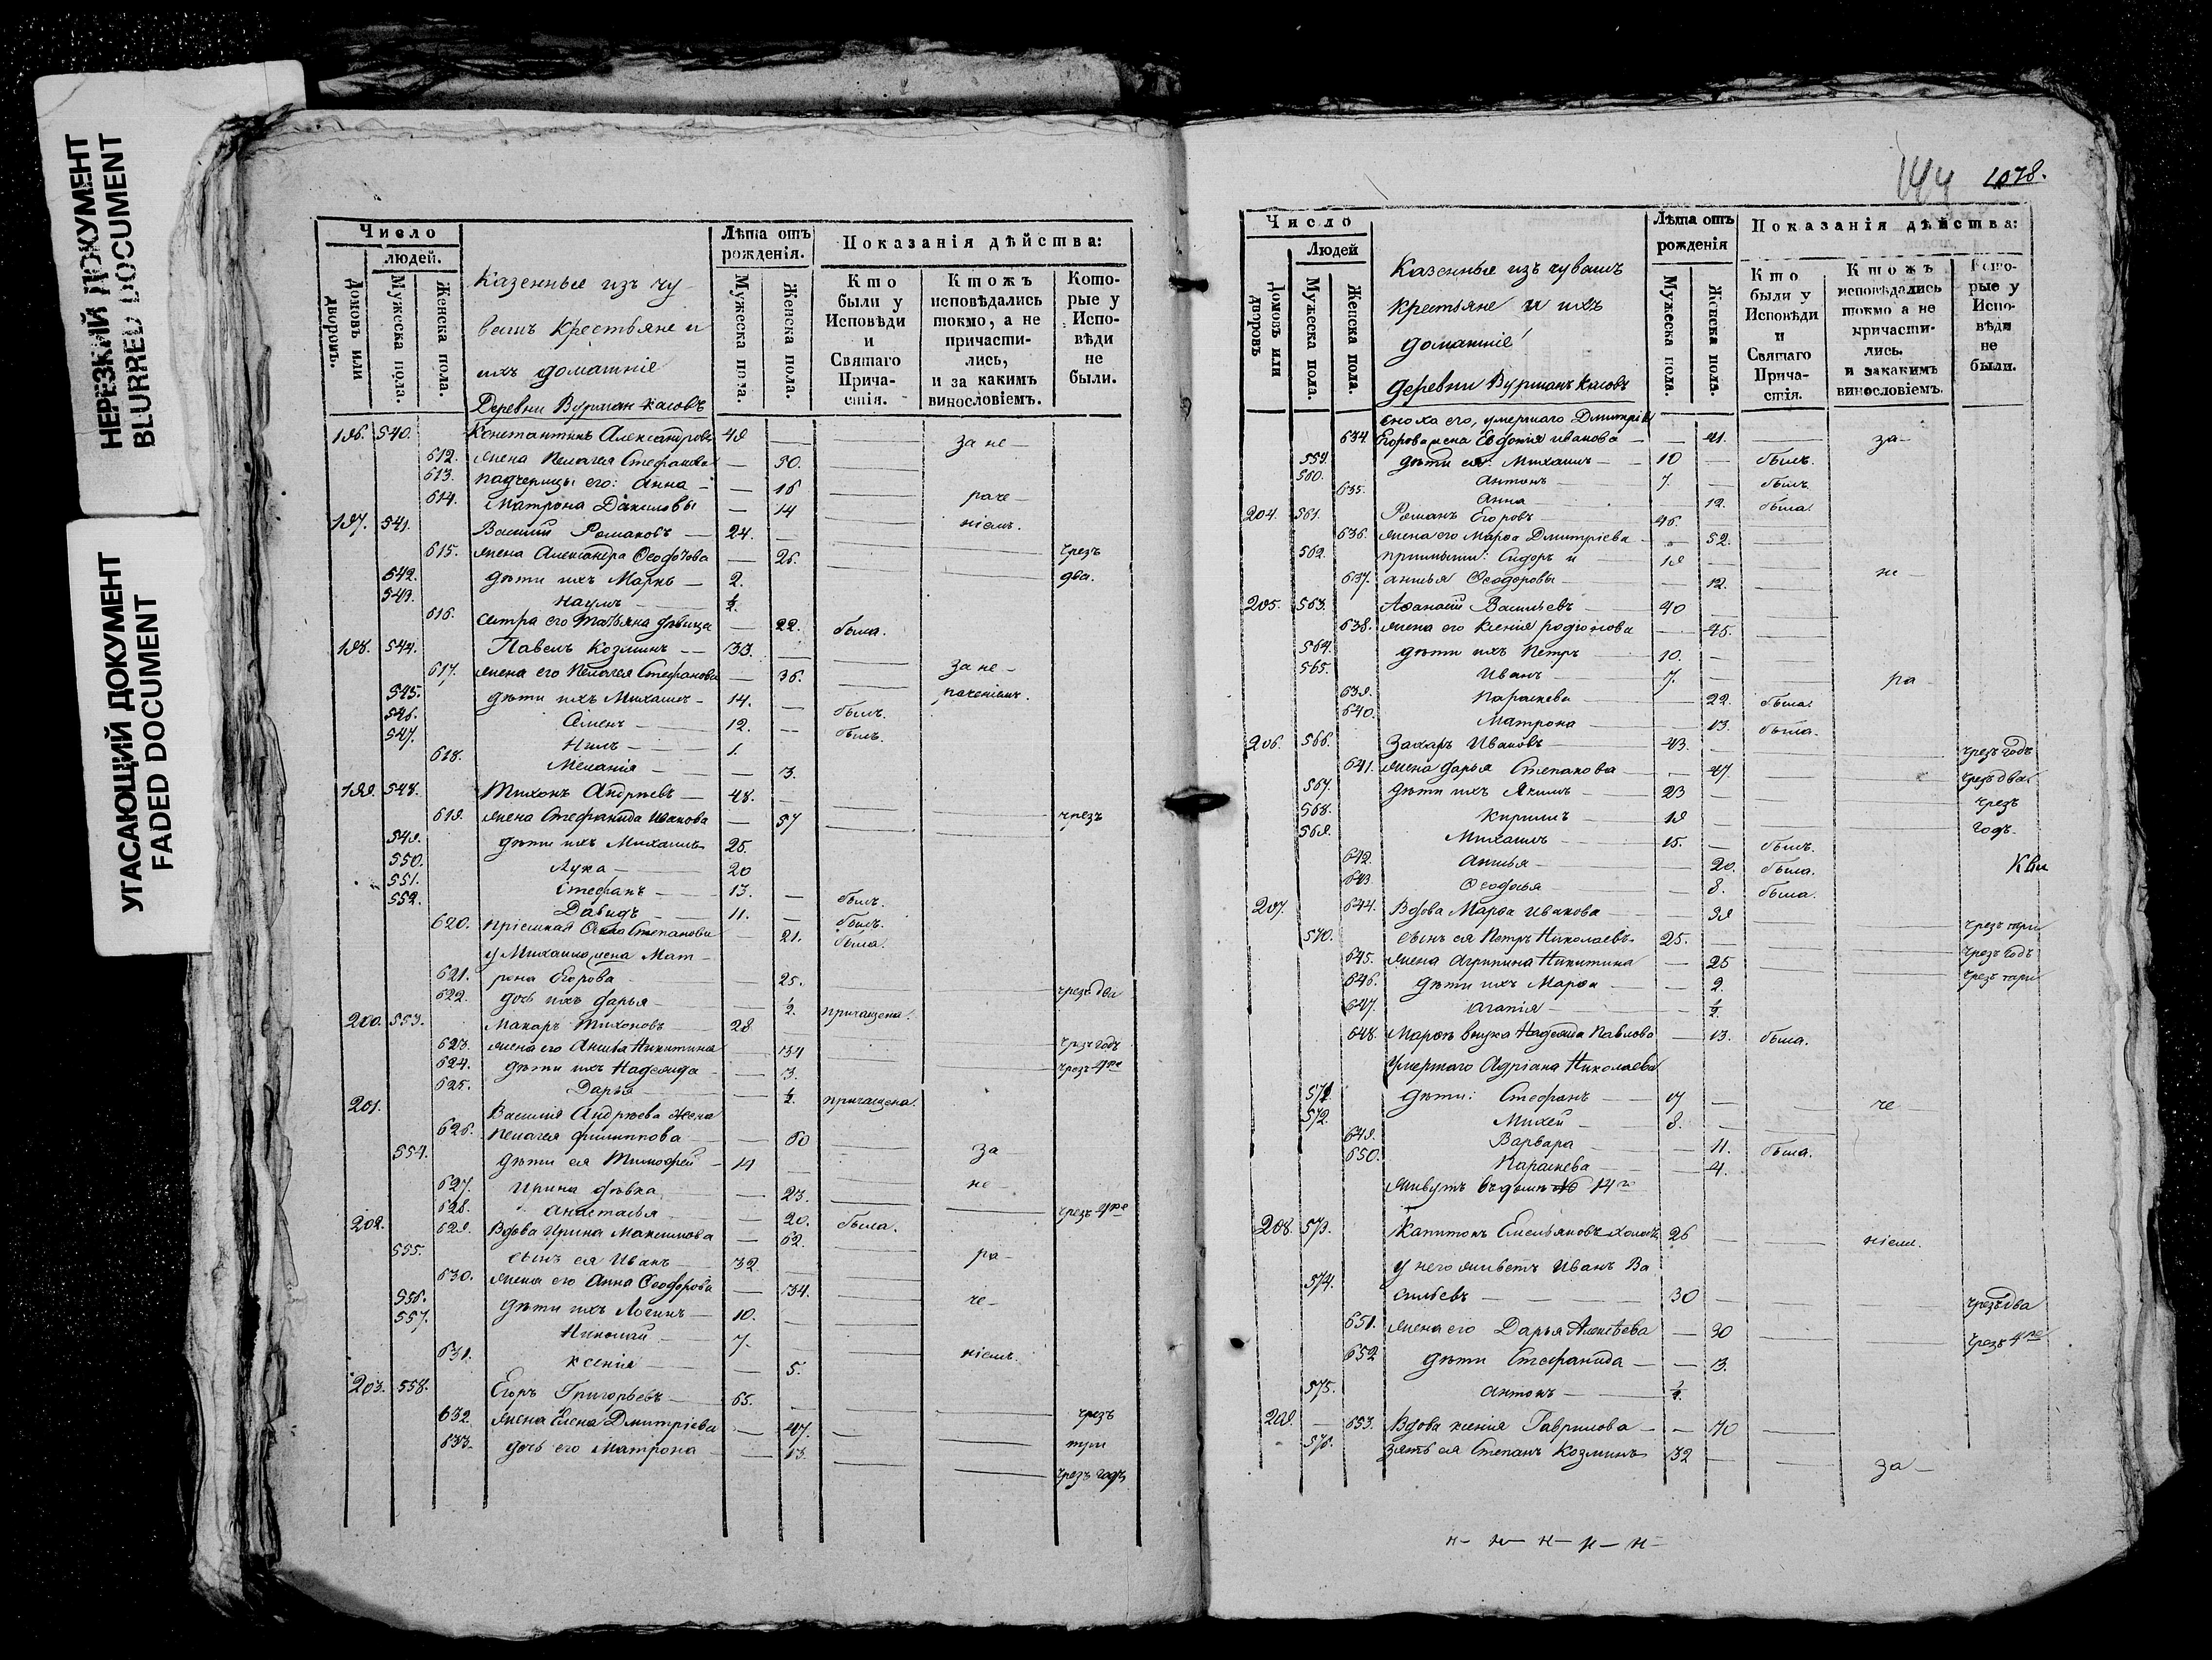 НЕРЕЗКИЙ ДОКУМЕНТ
BLURRED DOCUMENT
УГАСАЮЩИЙ ДОКУМЕНТ
FADED DOCUMENT
Число
людей.
Домовъ или дворовъ.
Мужеска пола.
Женска пола.
Казенные изъ чу-
вашъ крестьяне и
ихъ домашніе
Деревни Вурман касовъ
Лѣта отъ рожденія.
Мужеска пола.
Женска пола.
Показанія дѣйства:
Кто были у Исповѣди и Святаго Прича-стія.
Ктожъ исповѣдались токмо, а не причасти-лись, и за какимъ винословіемъ.
Кото-рые у Испо-вѣди не были.
196. 540. Константинъ Александровъ 49 — — за не —
612. жена Пелагея Стефанова — 50.
613. падчерицы его: Анна — — 16
614. Матрона Даниловы — 14 раче —
197. 541. Василий Романовъ — 24. — ніемъ.
615. жена Александра Ѳеодотова — 26. чрезъ
542. дѣти ихъ Маркъ — 2. два.
543. Наумъ — 1/2
616. сестра его Татьяна дѣвица — 22. была.
198. 544. Павелъ Козминъ — 33.
617. жена его Пелагея Стефанова — 36. за не —
545. дѣти ихъ Михаилъ — 14. — былъ. раченіемъ.
546. Семенъ — 12. — былъ.
547. Нилъ — 1.
618. Меланія — — 3.
199. 548. Тихонъ Андреевъ — 48. —
619. жена Стефанида Иванова — 57 чрезъ
549. дѣти ихъ Михаилъ 25.
550. Лука — 20
551. Стефанъ — 13. — былъ.
552. Давидъ — 11. — былъ.
620. Пріемная Степанова — 21. была.
у Михаила жена Мат-
621. рона Егорова — 25. чрезъ два
622. дочь ихъ Дарья — 1/2. причащена.
200. 553. Макаръ Тихоновъ — 28.
623. жена его Никитина — 34 чрезъ годъ
624. дѣти ихъ Надежда — 3. чрезъ
625. Дарья — 1/2. причащена.
201. Василия Андреева жена
626. Пелагея Филиппова — 60 за
554. дѣти ея Тимофей —
627. Ирина дѣвка — 23. не —
628. Анастасья — 20. была. чрезъ
202. 629. Вдова Ирина Максимова — 62.
555. сынъ ея Иванъ — 32. ра —
630. жена его Анна Ѳеодорова — 34.
556. дѣти ихъ Логинъ — 10. — че —
557. Николай — 7. —
631. Ксенія — 5. ніемъ.
203. 558. Егоръ Григорьевъ — 65. —
632. жена Елена Дмитріева — 47. чрезъ
633. дочь его Матрона — 13. три
чрезъ годъ
144 1078.
Число
Людей
Домовъ или дворовъ
Мужеска пола.
Женска пола.
Казенные изъ чувашъ
крестьяне и ихъ
домашніе
деревни Вурманъ Касовъ
Лѣта отъ рожденія
Мужеска пола.
Женска пола.
Показанія дѣйства:
Кто были у Исповѣди и Святаго Прича-стія.
Ктожъ исповѣдались токмо а не причасти-лись. и закакимъ винословіемъ.
Кото-рые у Испо-вѣди не были.
сноха его, умершаго Дмитрія
634. Егорова жена Евдокія Иванова — — 41. — за —
559. дѣти ея: Михаилъ — 10 — былъ.
560. Антонъ — 7. — былъ
635. Анна — 12. была.
204. 561. Романъ Егоровъ 46. —
636. жена его Марѳа Дмитріева — 52. —
562. Сидоръ и — 19 —
637. Ѳеодоровы — 12. — не
205. 563. Аѳанасій Васильевъ — 40 —
638. жена его Ксенія Родіонова — 45.
564. дѣти ихъ Петръ — 10. —
565. Иванъ — 7. — ра
639. Параскева — 22. была.
640. Матрона — 13. была.
206. 566. Захаръ Ивановъ — 43. — чрезъ годъ
641. жена Дарья Степанова — 47. чрезъ два
567. дѣти ихъ Якимъ — 23 чрезъ
568. Кирилъ — 19 годъ.
569. Михаилъ — 15. — былъ.
642. — 20. была. Кви
643. Ѳеодосья — 8. была.
207. 644. Вдова Марѳа Иванова — 39 чрезъ три
570. сынъ ея Петръ Николаевъ 25. — чрезъ годъ
645. жена Агрипина Никитина — 25 чрезъ три
646. дѣти ихъ Марѳа — — 2.
647. Агапія — 1/2
648. Марѳы внука Надежда Павлова — 13. была.
Умершаго Адріана Николаева
571. дѣти: Стефанъ — 17 — че
572. Михей — 8. —
649. Варвара — 11. была.
650. Параскева — 4.
живутъ въ домѣ № 14го
208. 573. Капитонъ Емельяновъ холостъ 26 — — ніемъ.
у него живетъ Иванъ Ва
574. сильевъ — 30 — чрезъ два
651. жена его Дарья Алексѣева — 30 — чрезъ
652 дѣти Стефанида — — 3.
575. Антонъ — 1/2
209. — 653. Вдова Ксенія Гаврилова — — 70 —
576. зять ея Степанъ Козминъ 32 — — за —